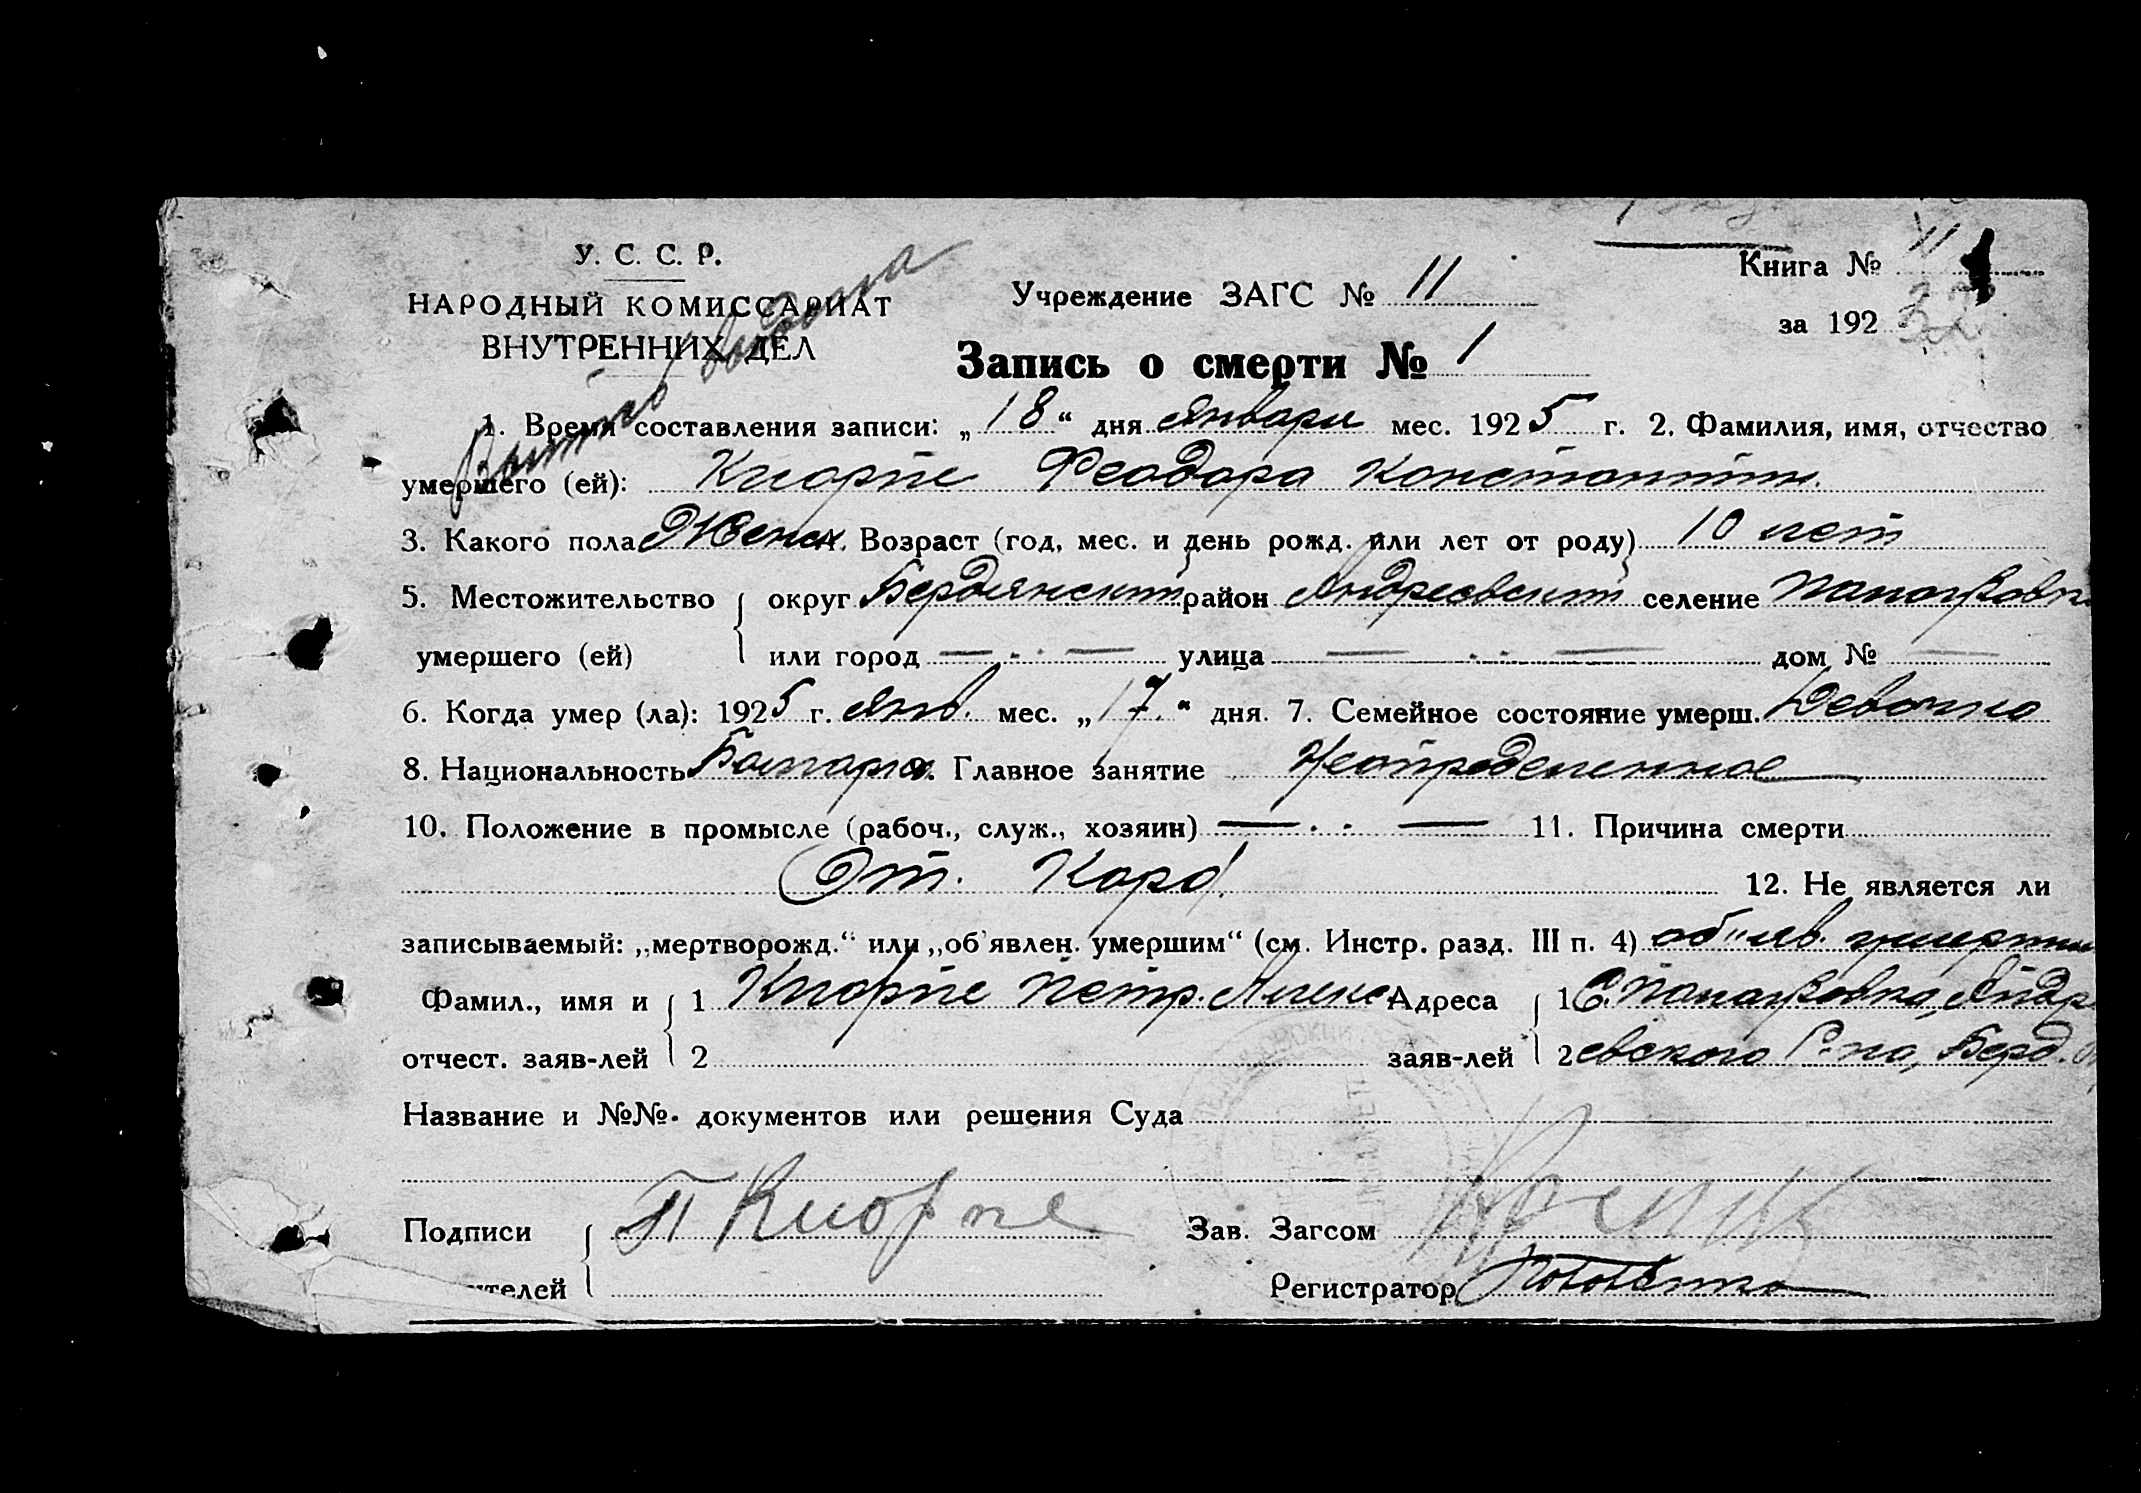 У. С. С. Р.
НАРОДНЫЙ КОМИССАРИАТ
ВНУТРЕННИХ ДЕЛ
Выпись выдана
Учреждение ЗАГС № 11
Книга № 11
за 192
Запись о смерти № 1
1. Время составления записи: „18“ дня января мес. 1925 г. 2. Фамилия, имя, отчество
умершего (ей): Кнорпе Феодора Константин.
3. Какого пола Женск. Возраст (год, мес. и день рожд. или лет от роду) 10 лет
5. Местожительство умершего (ей) { округ Бердянский район Андреевский селение
или город — · · — улица — · · — дом № —
6. Когда умер (ла): 1925 г. янв. мес. „17“ дня. 7. Семейное состояние умерш. Девочка
8. Национальность Болгарка 9. Главное занятие Неопределенное
10. Положение в промысле (рабоч., служ., хозяин) — · · — 11. Причина смерти
От. Кори 12. Не является ли
записываемый: „мертворожд.“ или „об'явлен. умершим“ (см. Инстр. разд. III п. 4) об"яв. умершим
Фамил., имя и отчест. заяв-лей { 1 Кнорпе Петр. Алекс. Адреса заяв-лей { 1 С. Андре
2 2 евского Р-на, Берд.
Название и №№· документов или решения Суда
Подписи { П Кнорпе Зав. Загсом
ителей Регистратор